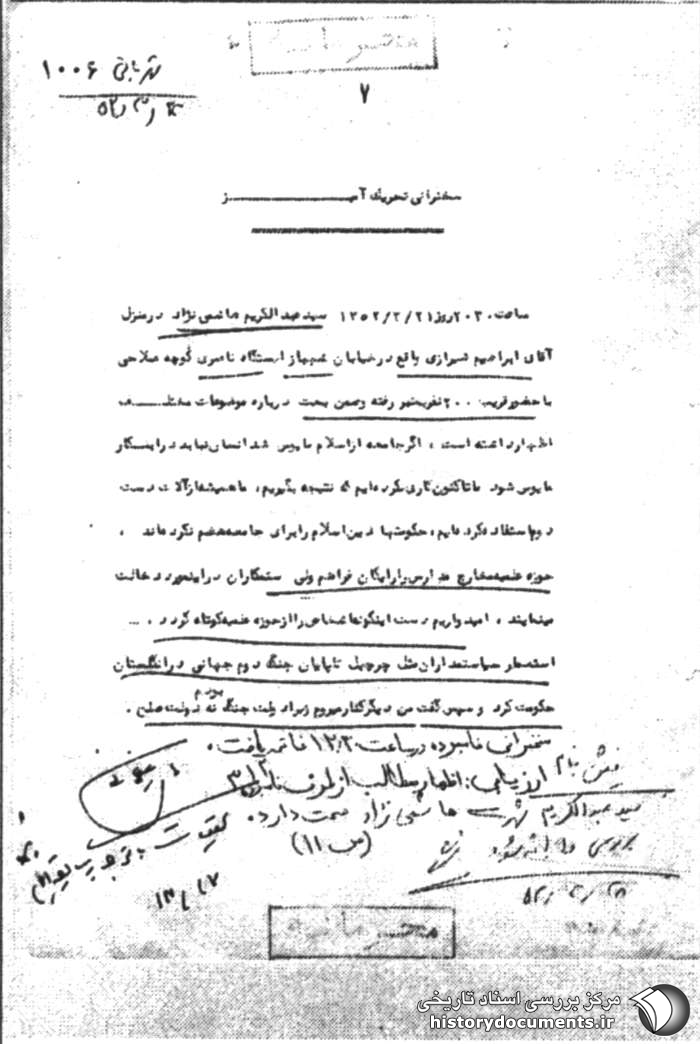 محرمانه
قربانی ۱۰۰۶
۷
سخنرانی تحریک آمیـــز
ساعت ۲۰۳۰ روز ۱۳۵۲/۲/۲۱ سید عبدالکریم هاشمی نژاد در منزل
آقای ابراهیم شیرازی واقع در خیابان شهباز ایستگاه ناصری کوچه صلاحی
با حضور قریب ۲۰۰ نفر بمنبر رفته و ضمن بحث درباره موضوعات مختلـــف
اظهار داشته است ، اگر جامعه از اسلام مایوس شد انسان نباید در اینکار
مایوس شود ما تاکنون کاری نکرده‌ایم که نتیجه بگیریم، ما همیشه از آلات دست
دوم استفاده کرده‌ایم، حکومتها دین اسلام را برای جامعه هضم نکرده‌اند .
حوزه علمیه مخارج مدارس را رایگان فراهم ولی ستمکاران در اینمورد دخالت
مینمایند ، امیدواریم دست اینگونه اشخاص را از حوزه علمیه کوتاه کردد ...
استعمار سیاستمداران مثل چرچیل تا پایان جنگ دوم جهانی در انگلستان
حکومت کرد و سپس گفت من دیگر کنار میروم زیرا دولت جنگ بودم نه دولت صلح .
سخنرانی نامبرده در ساعت ۱۲۰۲ خاتمه یافت .
ارزیابی : اظهار مطالب از طرف
سید عبدالکریم هاشمی نژاد صحت دارد .
(س ۱۱)
محرمانه
مرکز بررسی اسناد تاریخی
historydocuments.ir